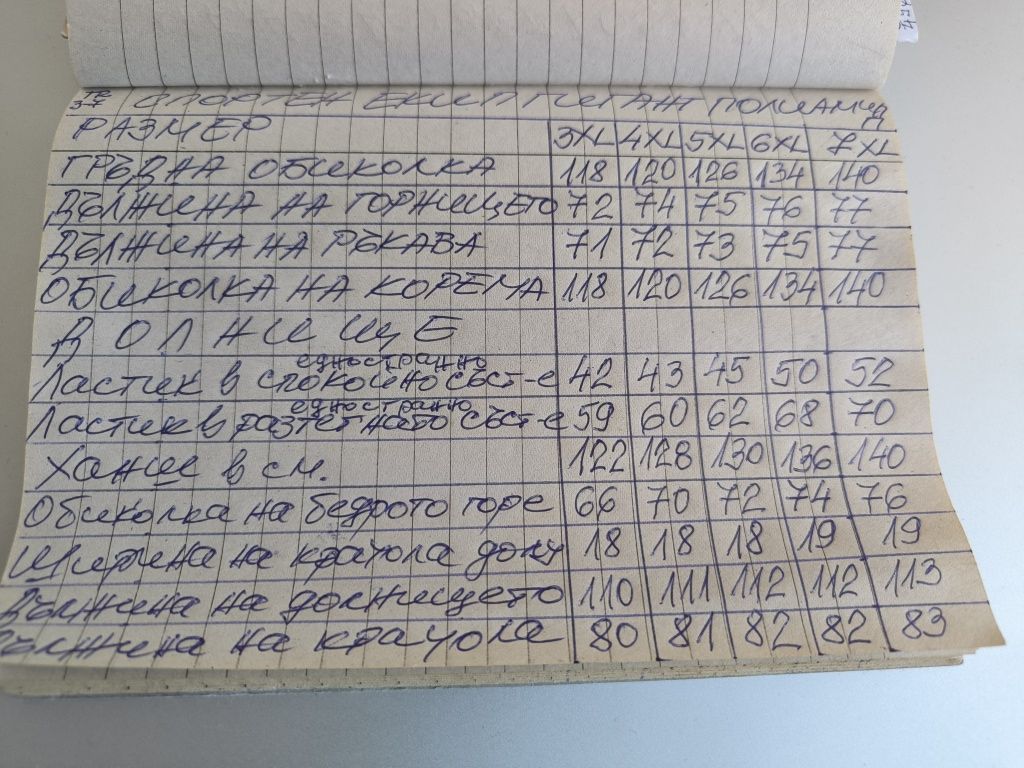 СПОРТЕН ЕКИП ГИГАНТ ПОЛИАМИД
РАЗМЕР 3XL 4XL 5XL 6XL 7XL
ГРЪДНА ОБИКОЛКА 118 120 126 134 140
ДЪЛЖИНА НА ГОРНИЩЕТО 72 74 75 76 77
ДЪЛЖИНА НА РЪКАВА 71 72 73 75 77
ОБИКОЛКА НА КОРЕМА 118 120 126 134 140
ДОЛНИЩЕ
едностранно
Ластик в спокойно със-т-е 42 43 45 50 52
едностранно
Ластик в разтегнато със-т-е 59 60 62 68 70
Ханш в см. 122 128 130 136 140
Обиколка на бедрото горе 66 70 72 74 76
Ширина на крачола долу 18 18 18 19 19
Дължина на долнището 110 111 112 112 113
Дължина на крачола 80 81 82 82 83